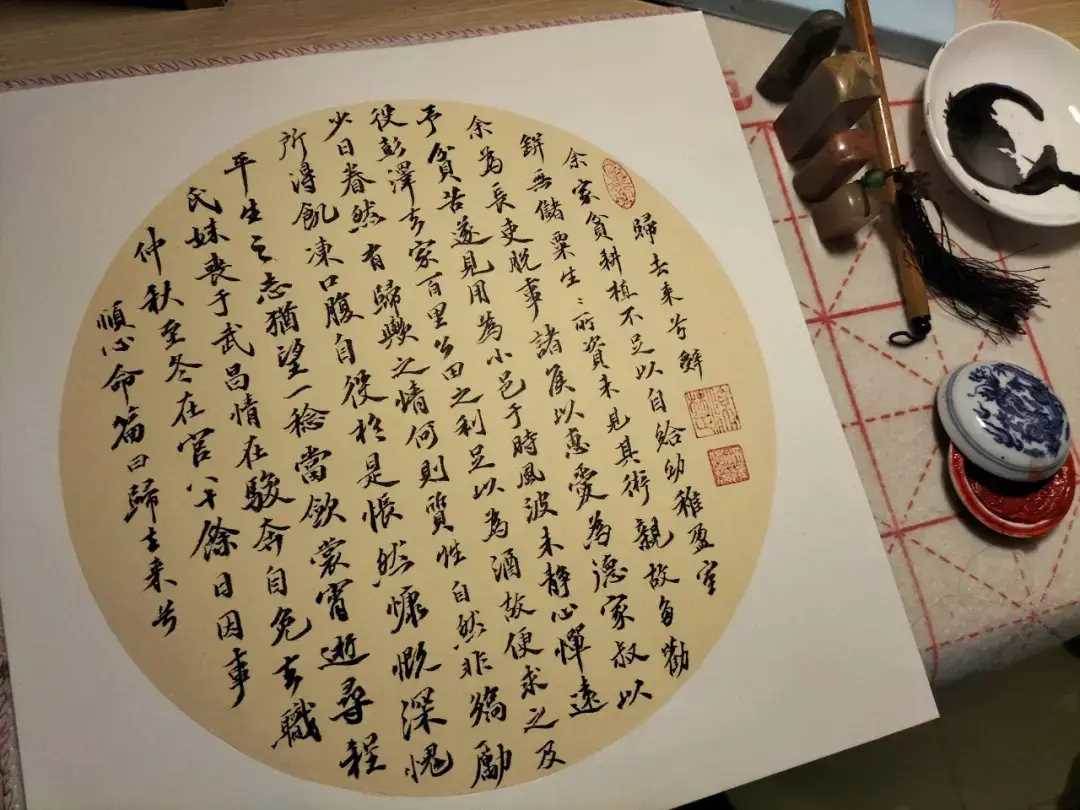 歸去来兮辭
余家貧耕植不足以自給幼稚盈室
缾无儲粟生〻所資未見其術親故多勸
余為長吏脱事諸侯以惠愛為德家叔以
予貧苦遂見用為小邑于時風波未静心憚遠
役彭澤去家百里公田之利足以為酒故便求之及
少日眷然有歸歟之情何則質性自然非矯勵
所得飢凍口腹自役於是悵然慷慨深愧
平生之志猶望一稔當斂裳宵逝尋程
氏妹喪于武昌情在駿奔自免去職
仲秋至冬在官八十餘日因事
順心命篇曰歸去来兮